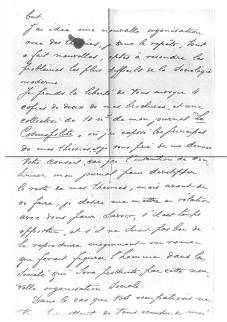 but.
J'ai idée une nouvelle organisation
avec des théories, je vous le répète, tout
à fait nouvelles, et à résoudre les
problèmes les plus difficiles de la Sociologie
moderne.
Je prends la liberté de vous envoyer 4
copies de deux de mes brochures et une
collection de 10 nos de mon journal "Le
Cosmopolite", où je expose les principes
de mes théories, et je vous prie de me donner
votre conseil, car j'ai l'intention de con-
tinuer mon journal pour développer
le reste de mes théories, mais avant de
ce faire, je désire me mettre en relation
avec vous pour savoir, s'il est temps
opportun, et s'il ne serait pas bon de
le reproduire moyennant un roman
qui ferait figurer l'homme dans la
Société que sera produite par cette nou-
velle organisation sociale.
Dans le cas que vous